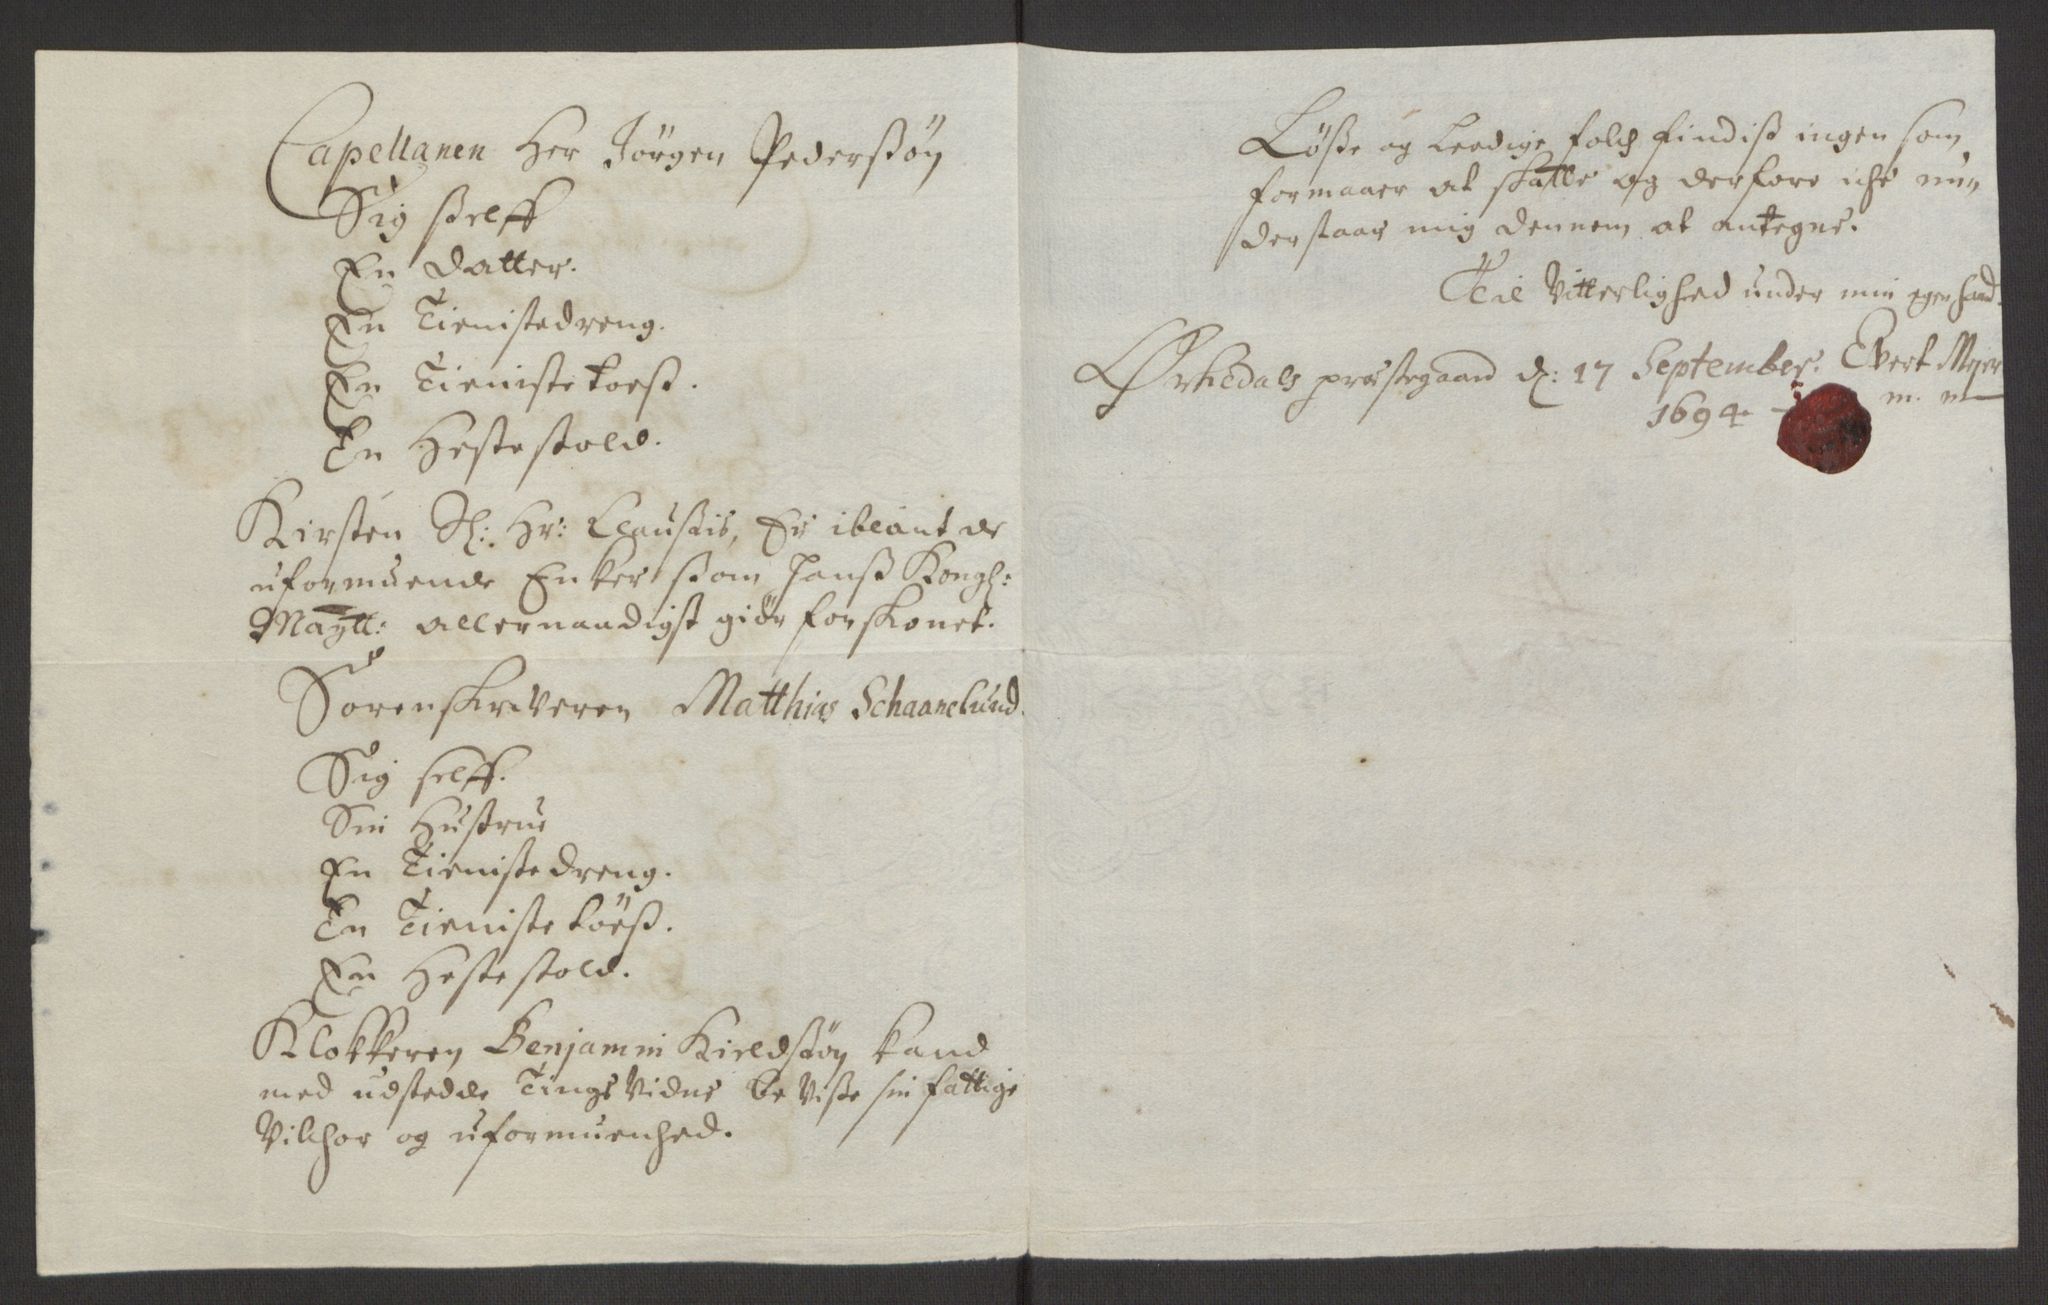 Capellanen Her Jörgen Pederßöн
Sig ßelff
En datter.
En Tienistedreng.
En Tieniste toeß.
En Hestestold.
Kirsten Sl: Hr: Claußis, Er iblant de
uformuende Enker ßom hanß Kongl:
Maytt: allernaadigst giör forskonet.
Sorenskriveren Matthias Schaanelund
Sig selff.
Sin Hustrue
En Tienistedreng.
En Tieniste töeß.
En Hestestold.
Klokkeren Benjamin Kieldsøn kand
med udstedde Tings Vidne beviße sin fattige
Vilchor og uformuenhed.
Lößße og leedige folch findiß ingen som
formaaer at skatte og derfore iche un-
derstaar mig dennem at antegne.
Till Vitterlighed under min egen haand.
Örkedals præstegaard d: 17 September. Evert Mejer
1694 m. m